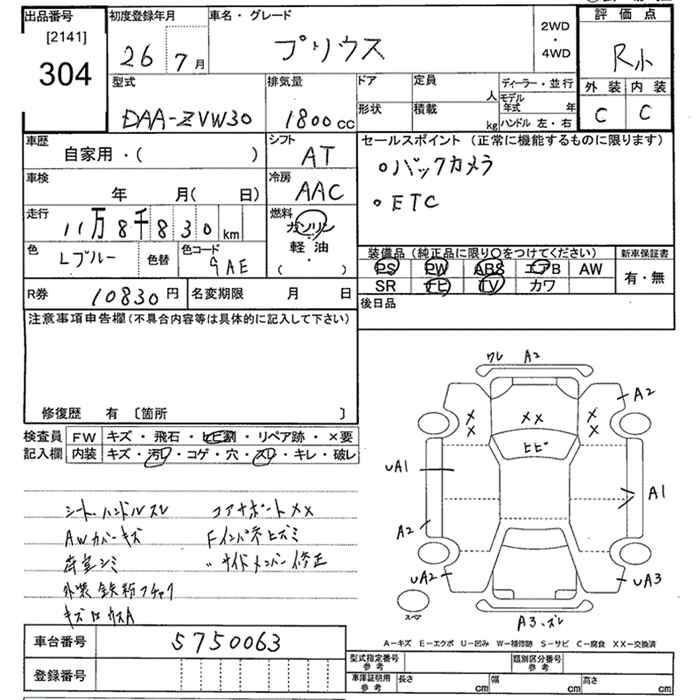 出品番号 初度登録年月 車名・グレード 2WD ・ 4WD 評価点
[2141] 304 26 7月 プリウス R小
型式 排気量 ドア 定員 人 ディーラー・並行 外装 内装
DAA-ZVW30 1800cc 形状 積載 kg モデル年式 年 ハンドル 左・右 C C
車歴 自家用・( ) シフト AT セールスポイント (正常に機能するものに限ります)
車検 年 月( 日) 冷房 AAC ○バックカメラ
走行 11万8千830km 燃料 ガソリン 軽油 ・ ( ) ○ETC
色 Lブルー 色替 色コード 9AE 装備品(純正品に限り○をつけてください) 新車保証書
PS PW ABS エアB AW 有・無
SR ナビ TV カワ
R券 10830円 名変期限 月 日 後日品
注意事項申告欄(不具合内容等は具体的に記入して下さい)
修復歴 有 〔箇所 〕
検査員 記入欄 FW キズ・飛石・ヒビ割・リペア跡・×要
内装 キズ・汚れ・コゲ・穴・スレ・キレ・破レ
シート・ハンドルスレ コアサポートXX
AWカバーキズ Fインパネヒズミ
荷室シミ 〃サイドメンバー修正
外装鉄粉
ワレ A2
A2
×× ×× ××
ヒビ
UA1 A1
A2
UA2 UA3
スペア A3・ズレ
A-キズ E-エクボ U-凹み W-補修跡 S-サビ C-腐食 XX-交換済
車台番号 5750063 型式指定番号 参考 類別区分番号 参考
登録番号 車庫証明用 参考 長さ cm 幅 cm 高さ cm